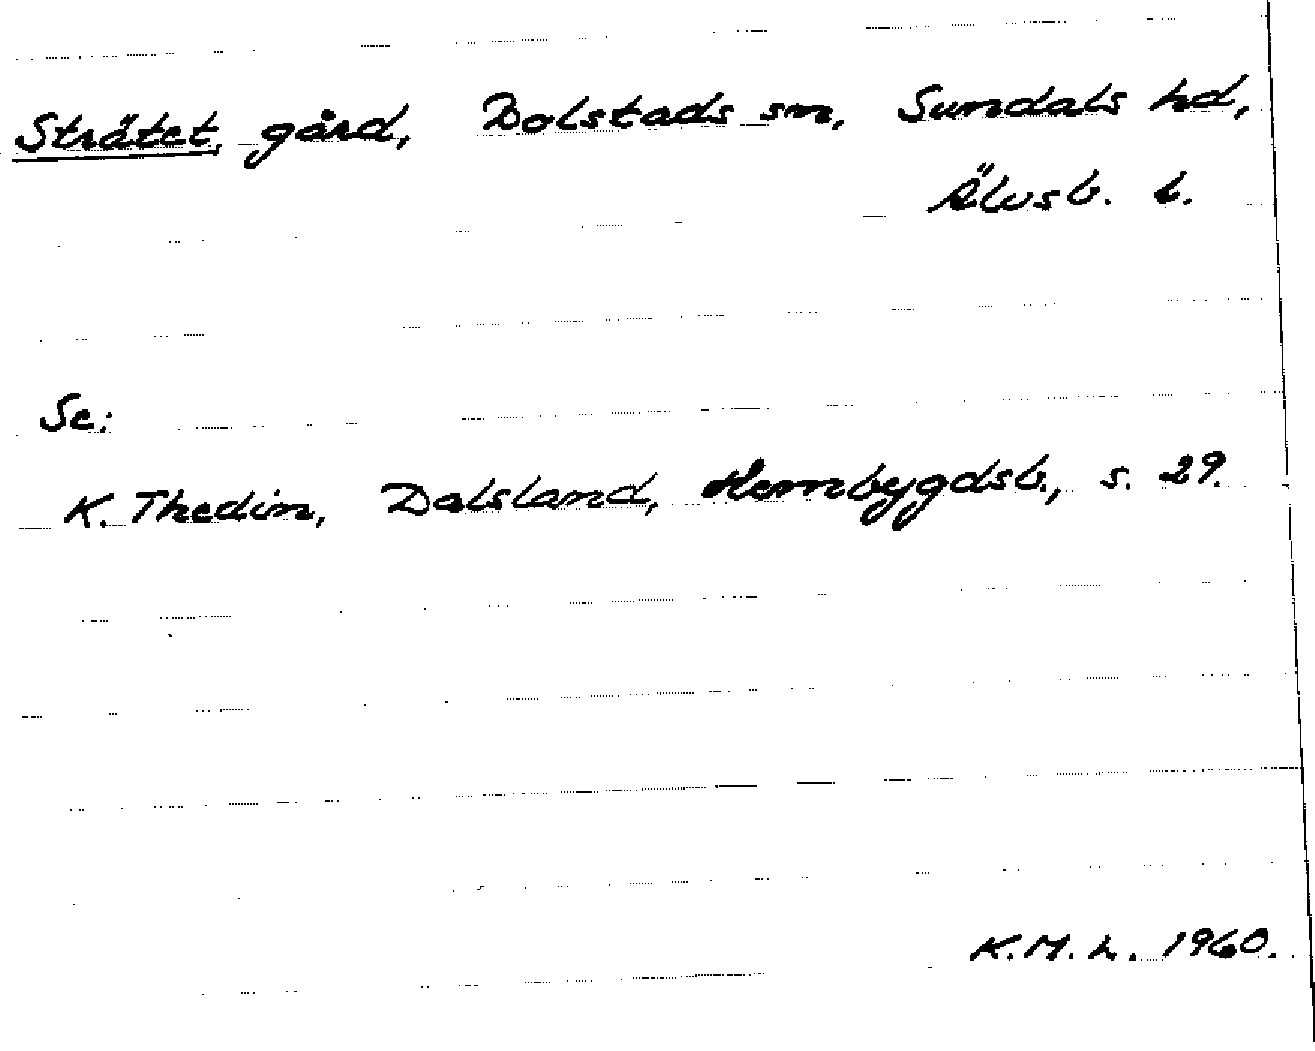 Strätet, gård, Bolstads sn, Sundals hd,
Älvsb. l.
Se:
K. Thedin, Dalsland, Hembygdsb., s. 29.
K.M.L. 1960.